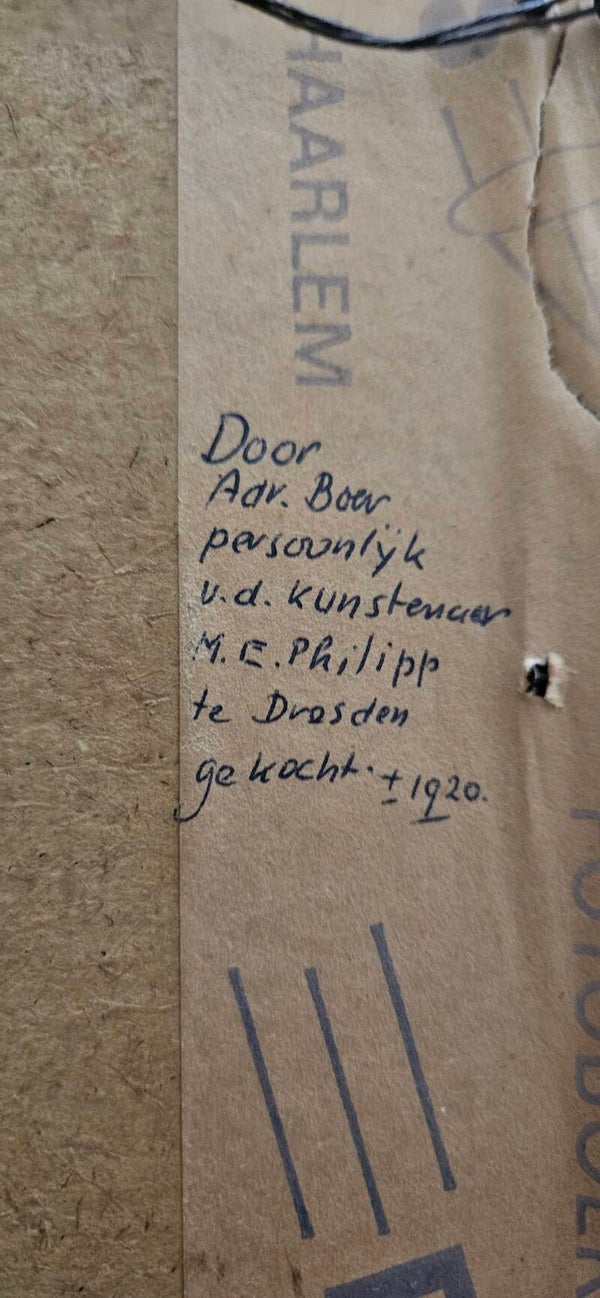 HAARLEM
Door
Adr. Boer
persoonlijk
v.d. kunstenaar
M.E. Philipp
te Dresden
gekocht. ± 1920.
FOTOBOER